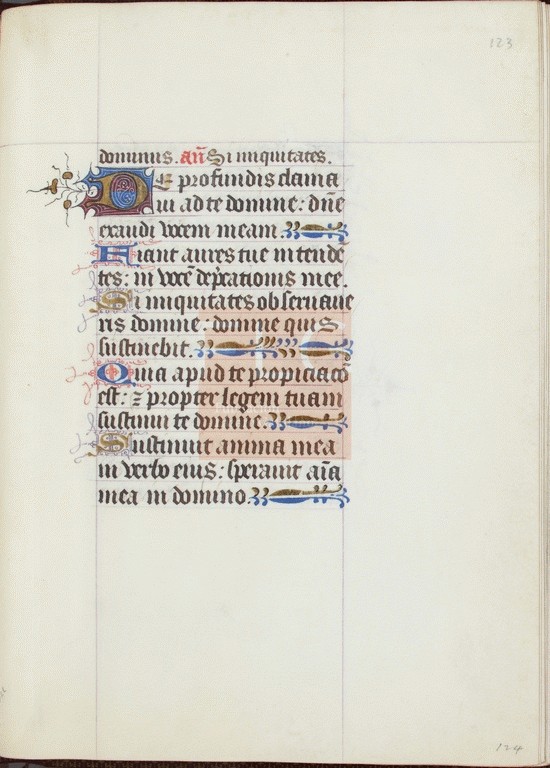 123
dominus. an̄ Si iniquitates.
De profundis clama
ui ad te domine: dn̄e
exaudi vocem meam.
Fiant aures tue intendē
tes: in vocē dep̄cationis mee.
Si iniquitates obseruaue
ris domine: domine quis
sustinebit.
Quia apud te propiciacō
est: ⁊ propter legem tuam
sustinui te domine.
Sustinuit anima mea
in verbo eius: sperauit aīa
mea in domino.
124